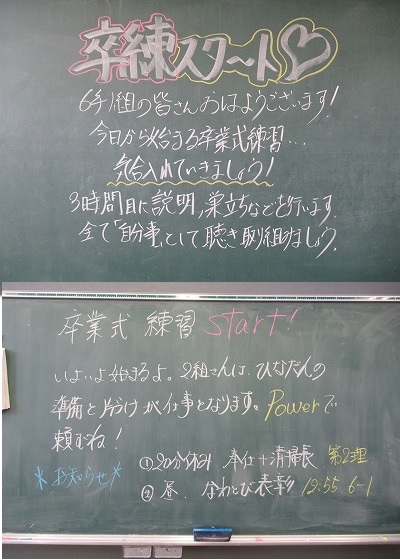 卒練スタート♡
6年1組の皆さんおはようございます!
今日から始まる卒業式練習…
気合入れていきましょう!
3時間目に説明,巣立ちなどを行います。
全て「自分事」として聴き取り組みましょう。
卒業式 練習 start!
いよいよ始まるよ。2組さんは、ひなだんの
準備と片づけが仕事となります。Powerで
頼むね!
*お知らせ*
①20分休み 奉仕+清掃長 第2理
② 昼. なわとび表彰 12:55 6-1